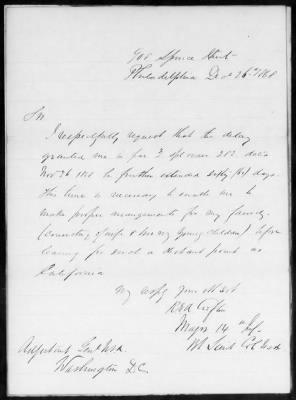 Spruce Street
Philadelphia Dec 26th 1868
Sir
I respectfully request that the delay
granted me in par 3 Spl order 282 dated
Nov 26 1868 be further extended sixty (60) days.
This time is necessary to enable me to
make proper arrangements for my family
(consisting of wife & young children) before
leaving for such a distant point as
California
Very respy your obt Svt
Major 14th Inf.
Bt Lieut Col USA
Adjutant Genl USA
Washington D.C.